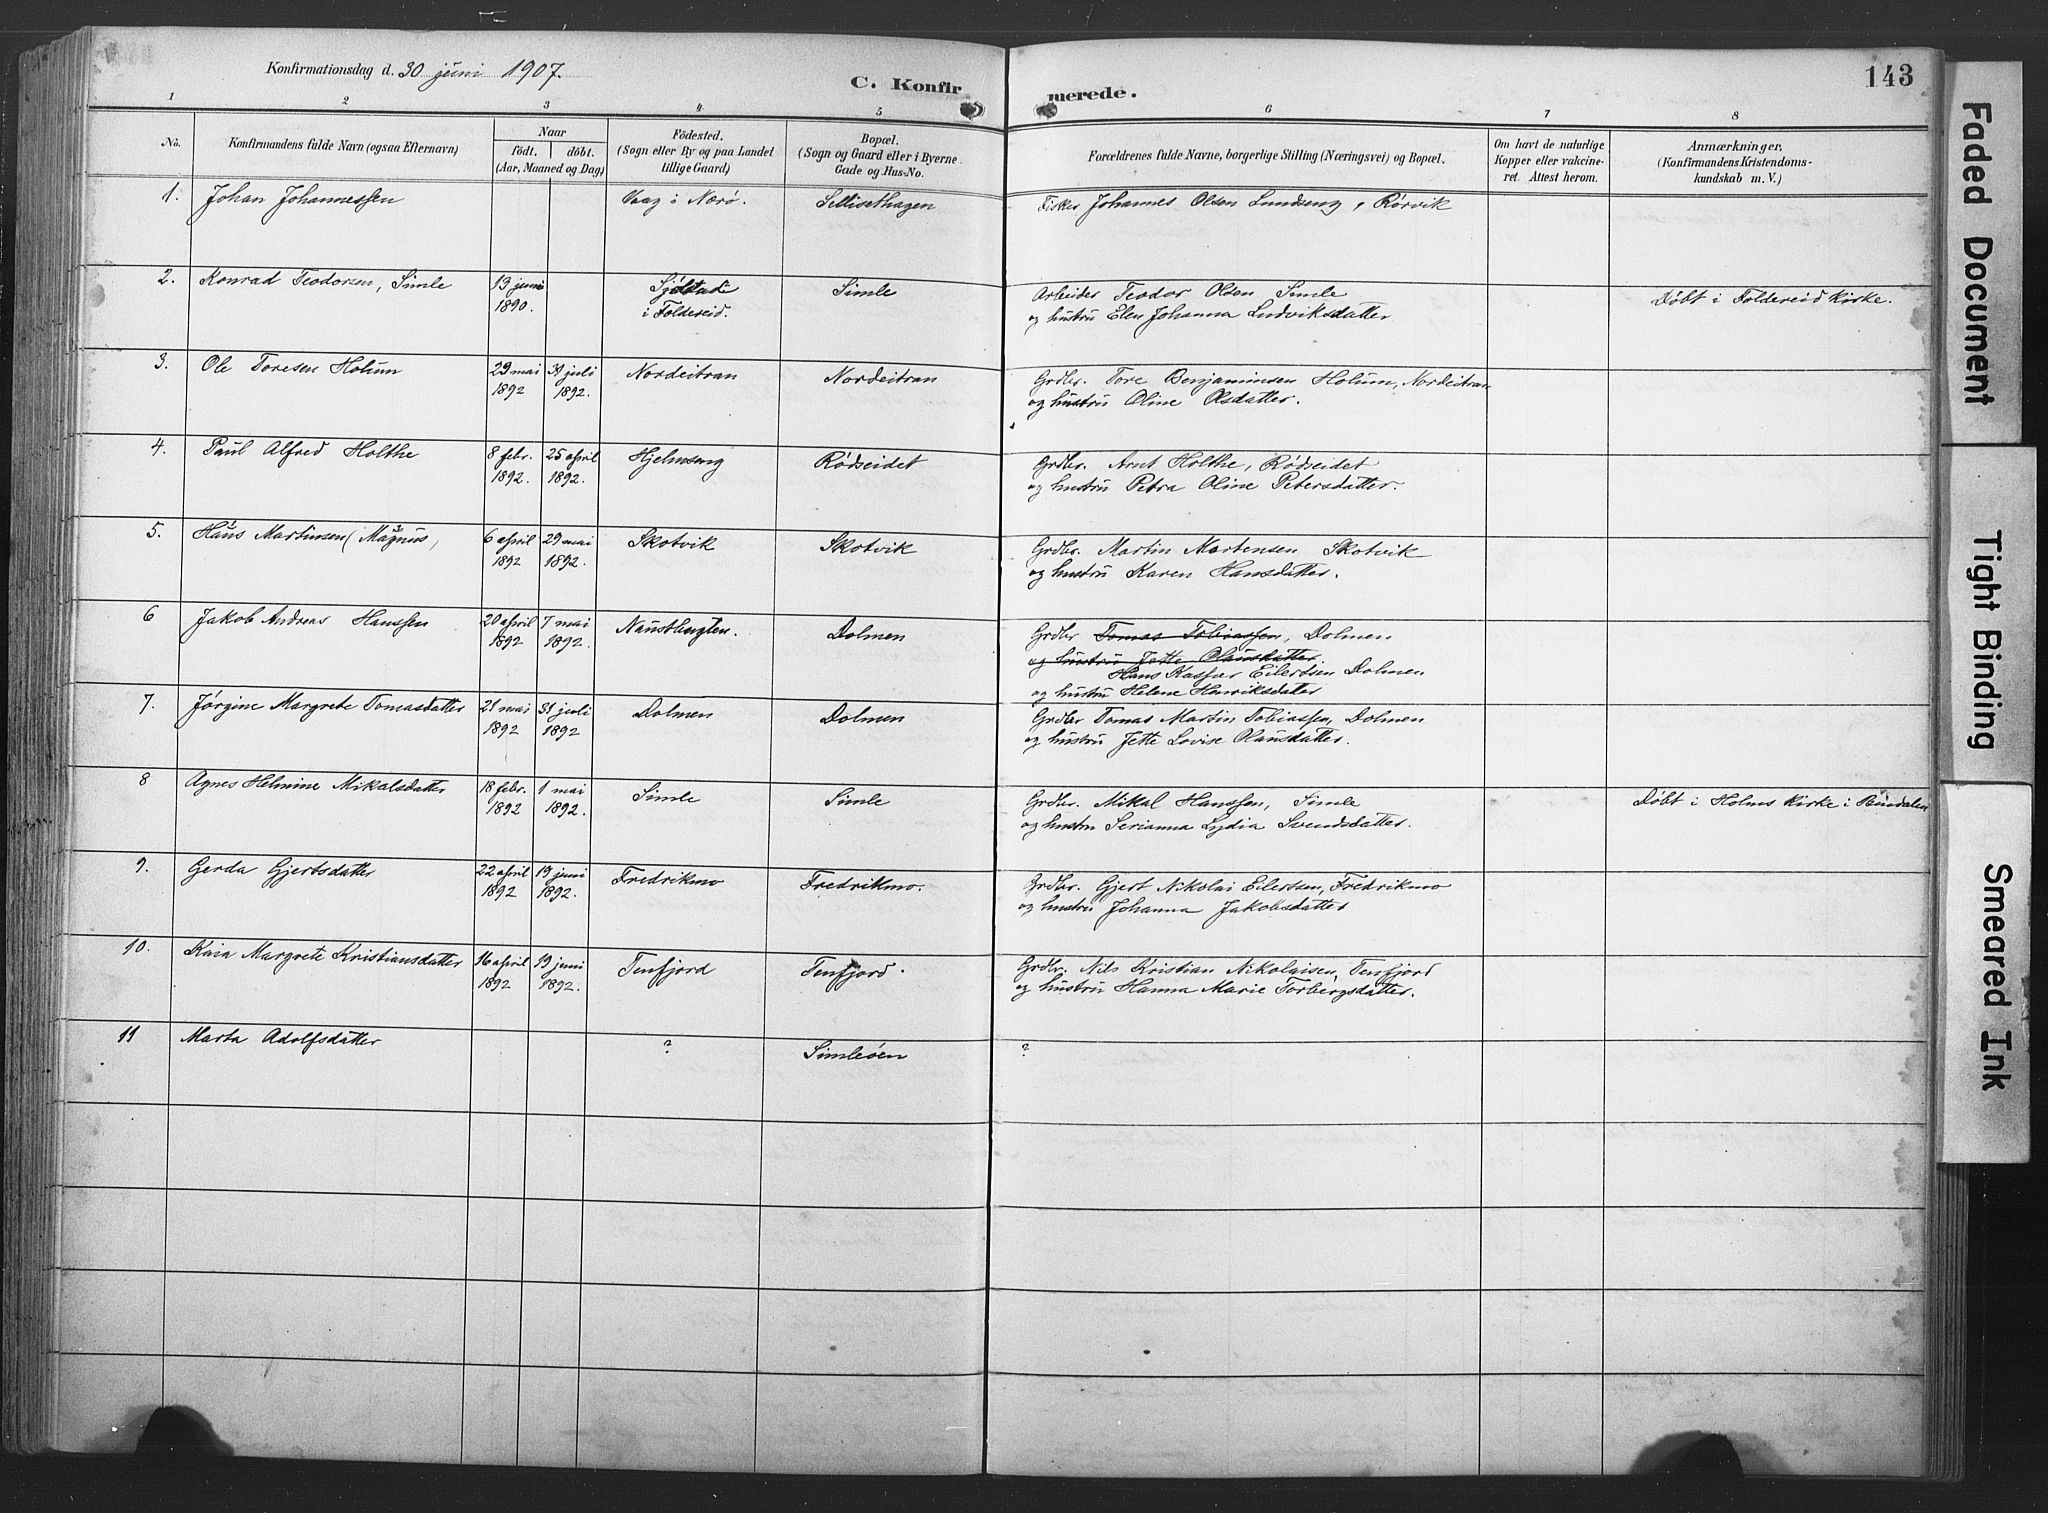 Konfirmationsdag d. 30 juni 1907.
C. Konfirmerede.
143
1 2 3 4 5 6 7 8
No.
Konfirmandens fulde Navn (ogsaa Efternavn)
Naar
födt. döbt.
(Aar, Maaned og Dag)
Födested.
(Sogn eller By og paa Landet
tillige Gaard)
Bopæl.
(Sogn og Gaard eller i Byerne
Gade og Hus-No.
Forældrenes fulde Navne, borgerlige Stilling (Næringsvei) og Bopæl.
Om havt de naturlige
Kopper eller vakcine-
ret. Attest herom.
Anmærkninger.
(Konfirmandens Kristendoms-
kundskab m. V.)
1. Johan Johannessen Vaag i Nærø. Sellisethagen Fisker Johannes Olsen Lundseng, Rörvik
2. Konrad Teodorsen, Simle 13 juni Simle Arbeider Teodor Olsen Simle Döbt i Foldereid kirke.
1890. i Foldereid. og hustru Elen Johanna Ludviksdatter
3. Ole Toresen Holum 29 mai 31 juli Nordeitran Nordeitran Grdbr. Tore Benjaminsen Holum, Nordeitran
1892 1892. og hustru Oline Olsdatter.
4. Paul Alfred Holthe 8 febr. 25 april Hjelmseng Rödseidet Grdbr. Arnt Holthe, Rödseidet
1892. 1892. og hustru Petra Oline Petersdatter.
5. Hans Martinsen (Magnus) 6 april 29 mai Skotvik Skotvik Grdbr. Martin Martensen Skotvik
1892 1892. og hustru Karen Hansdatter.
6 Jakob Andreas Hanssen 20 april 7 mai Naustbugten. Dolmen Grdbr Tomas Tobiassen, Dolmen
1892 1892. og hustru Jette Olausdatter
Hans Kasper Eilertsen Dolmen
og hustru Helene Henriksdatter
7. Jørgine Margrete Tomasdatter 21 mai 31 juli Dolmen Dolmen Grdbr Tomas Martin Tobiassen, Dolmen
1892 1892 og hustru Jette Lovise Olausdatter.
8 Agnes Helmine Mikalsdatter 18 febr. 1 mai Simle Simle Grdbr. Mikal Hanssen, Simle Döbt i Holms kirke i Bindalen
1892 1892. og hustru Serianna Lydia Svendsdatter.
9. Gerda Gjertsdatter 22 april 19 juni Fredrikmo Fredrikmo. Grdbr. Gjert Nikolai Eilertsen, Fredrikmo
1892 1892. og hustru Johanna Jakobsdatter
10. Kaia Margrete Kristiansdatter 16 april 19 juni Tenfjord Tenfjord. Grdbr. Nils Kristian Nikolaisen, Tenfjord
1892 1892. og hustru Hanna Marie Torbergsdatter.
11 Marta Adolfsdatter ? Simleöen ?
Faded Document
Tight Binding
Smeared Ink